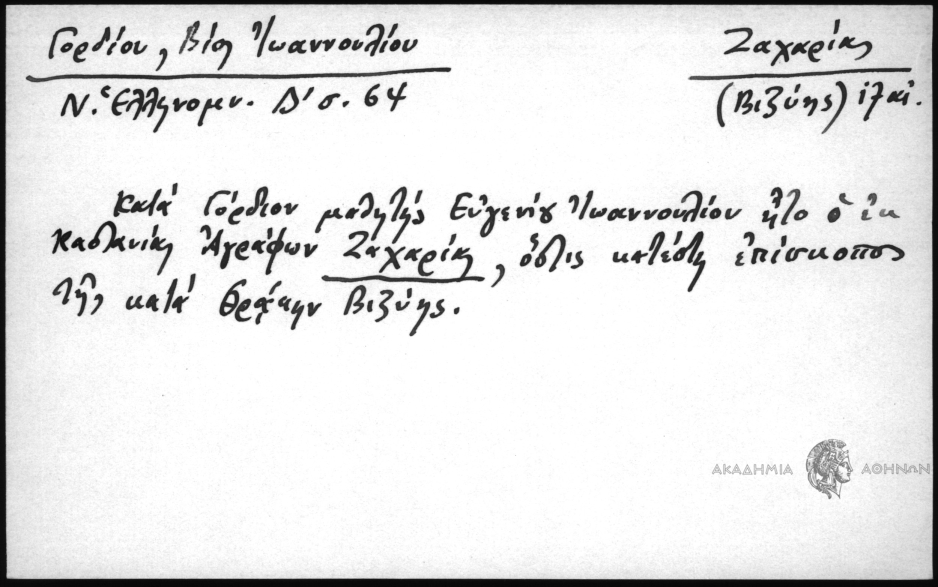 Γορδίου, Βίος Ἰωαννουλίου
Ζαχαρίας
Ν. Ἑλληνομν. Δ' σ. 64
(Βιζύης)
Κατά Γόρδιον μαθητής Εὐγενίου Ἰωαννουλίου ἦτο ὁ ἐκ
Καστανίας Ἀγράφων Ζαχαρίας, ὅστις κατέστη ἐπίσκοπος
τῆς κατά Θρᾴκην Βιζύης.
ΑΚΑΔΗΜΙΑ ΑΘΗΝΩΝ